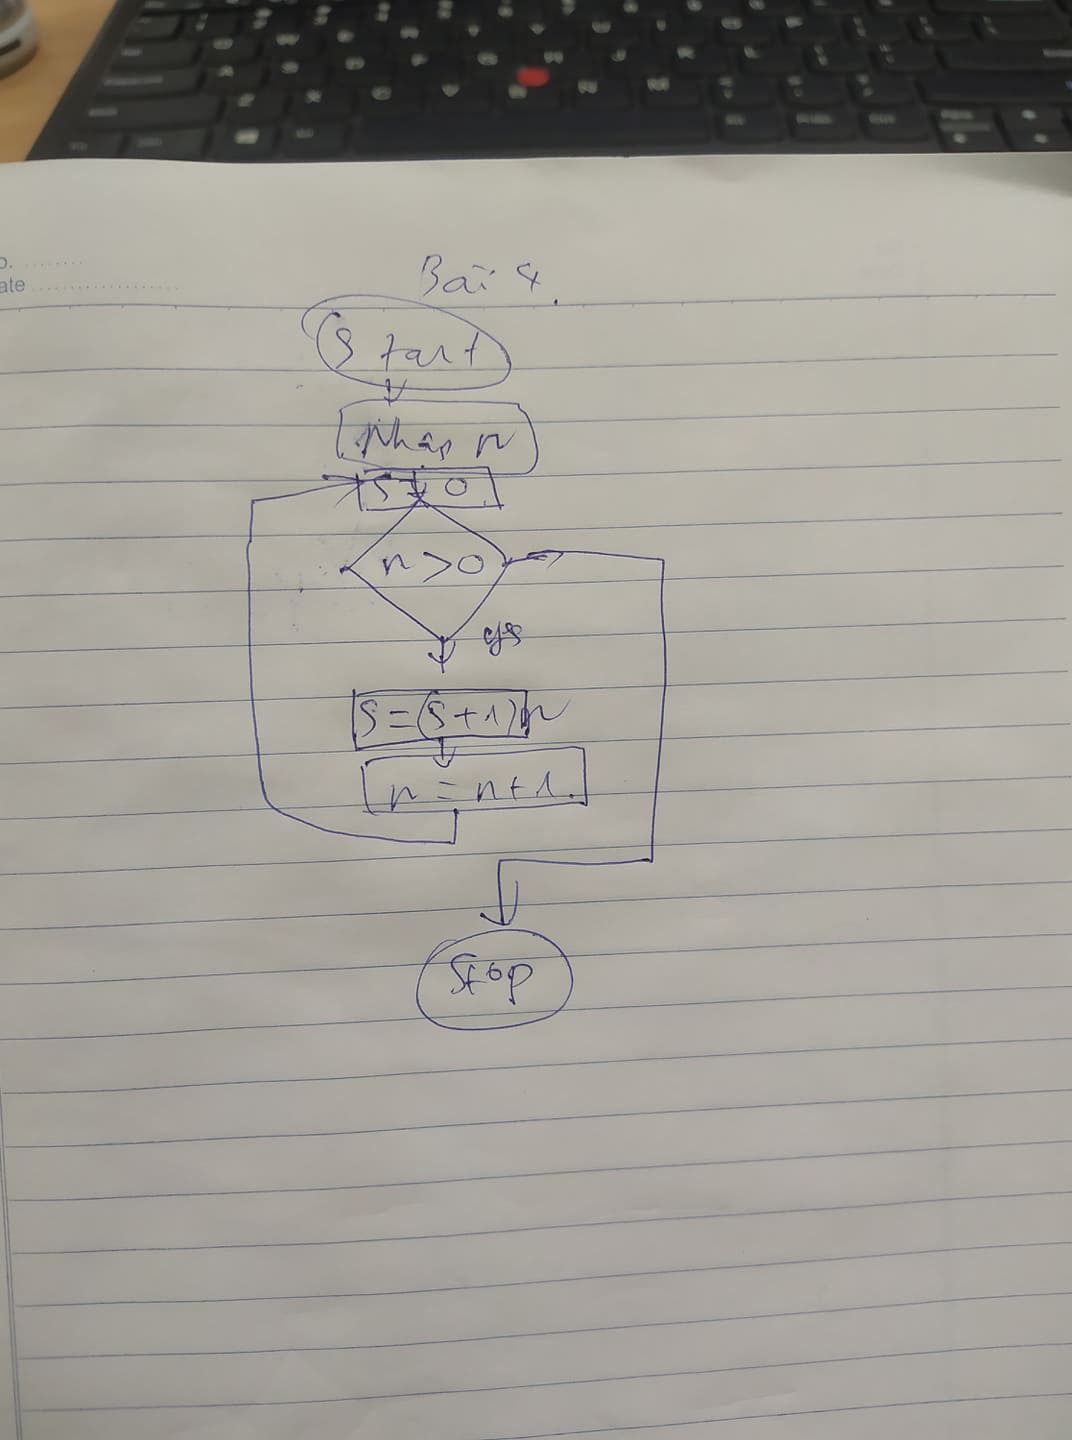 Bài 4.
Start
Nhập n
S = 0
n > 0
yes
S = (S + 1) n
n = n + 1.
Stop